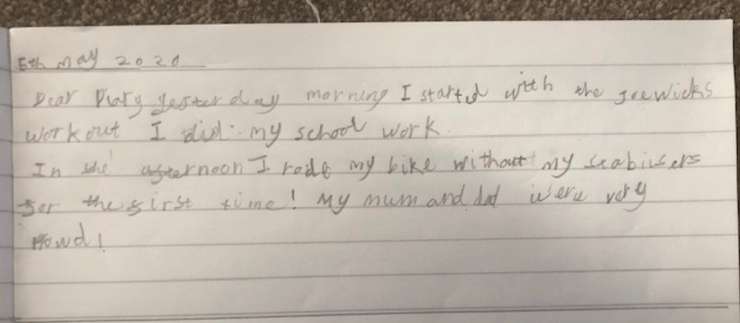 5th may 2020
Dear Diary yesterday morning I started with the Joe wicks
workout I did my school work.
In the afternoon I rode my bike without my stabilisers
for the first time! My mum and dad were very
Prowd!